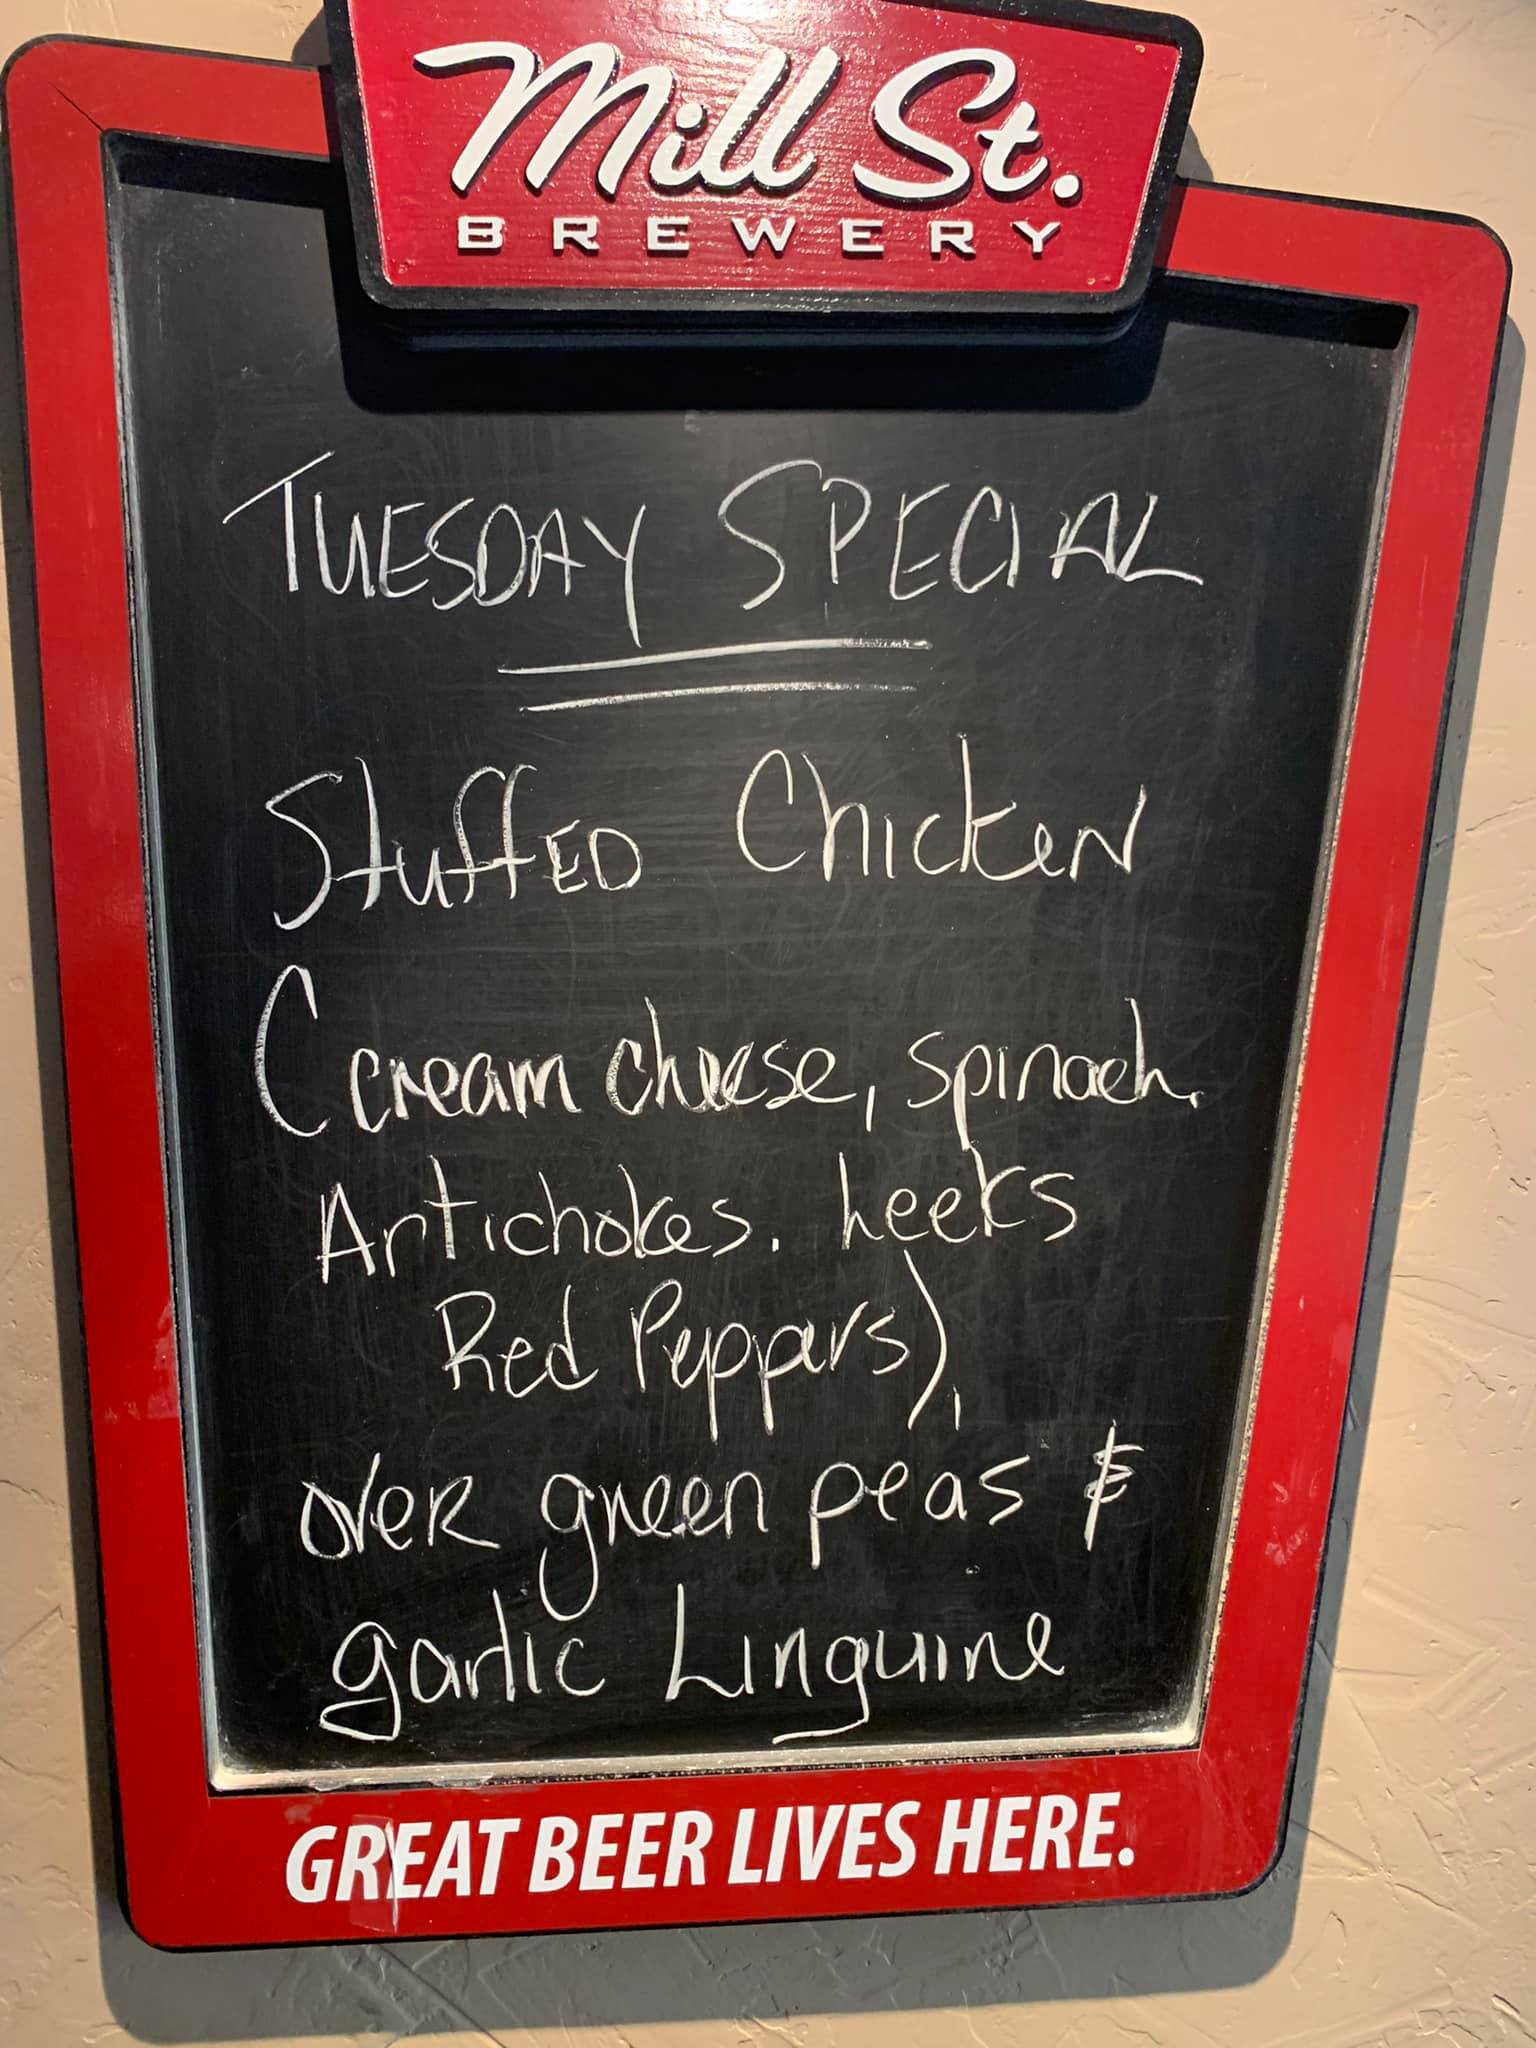 Mill St.
BREWERY
TUESDAY SPECIAL
StuffED Chicken
( cream cheese, spinach,
Artichokes. Leeks
Red Peppers),
over green peas &
garlic Linguine
GREAT BEER LIVES HERE.